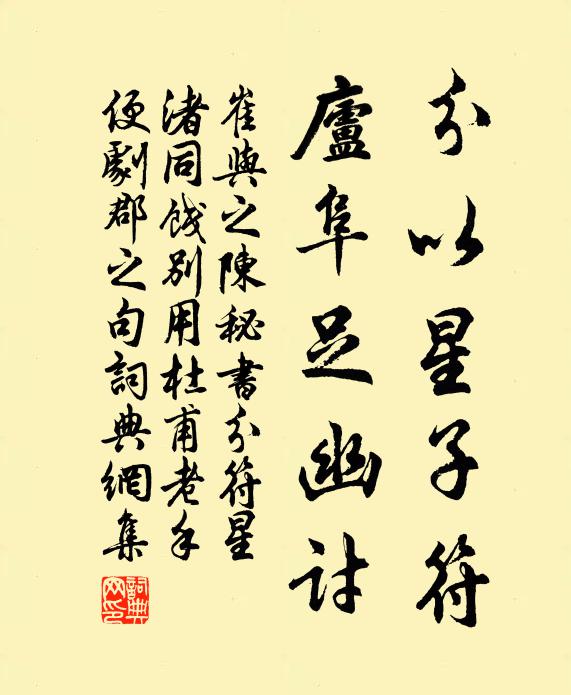 分以星子符
廬阜足幽討
崔與之陳秘書分符星
渚同餞別用杜甫老手
便劇郡之句詞典網集